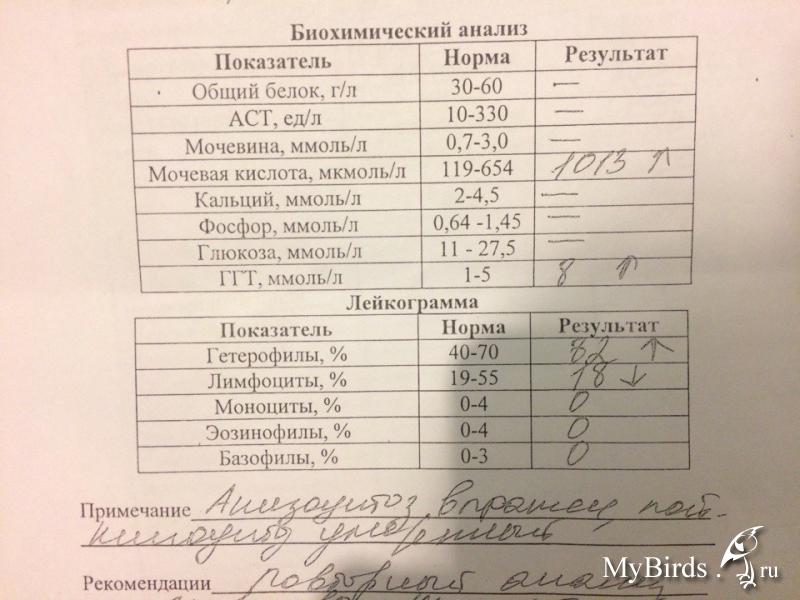 Биохимический анализ
Показатель Норма Результат
Общий белок, г/л 30-60 —
АСТ, ед/л 10-330 —
Мочевина, ммоль/л 0,7-3,0 —
Мочевая кислота, мкмоль/л 119-654 1013 ↑
Кальций, ммоль/л 2-4,5 —
Фосфор, ммоль/л 0,64 -1,45 —
Глюкоза, ммоль/л 11 - 27,5 —
ГГТ, ммоль/л 1-5 8 ↑
Лейкограмма
Показатель Норма Результат
Гетерофилы, % 40-70 82 ↑
Лимфоциты, % 19-55 18 ↓
Моноциты, % 0-4 0
Эозинофилы, % 0-4 0
Базофилы, % 0-3 0
Примечание Анизоцитоз выражен, пой-
килоцитоз умеренный
Рекомендации повторный анализ
MyBirds.ru